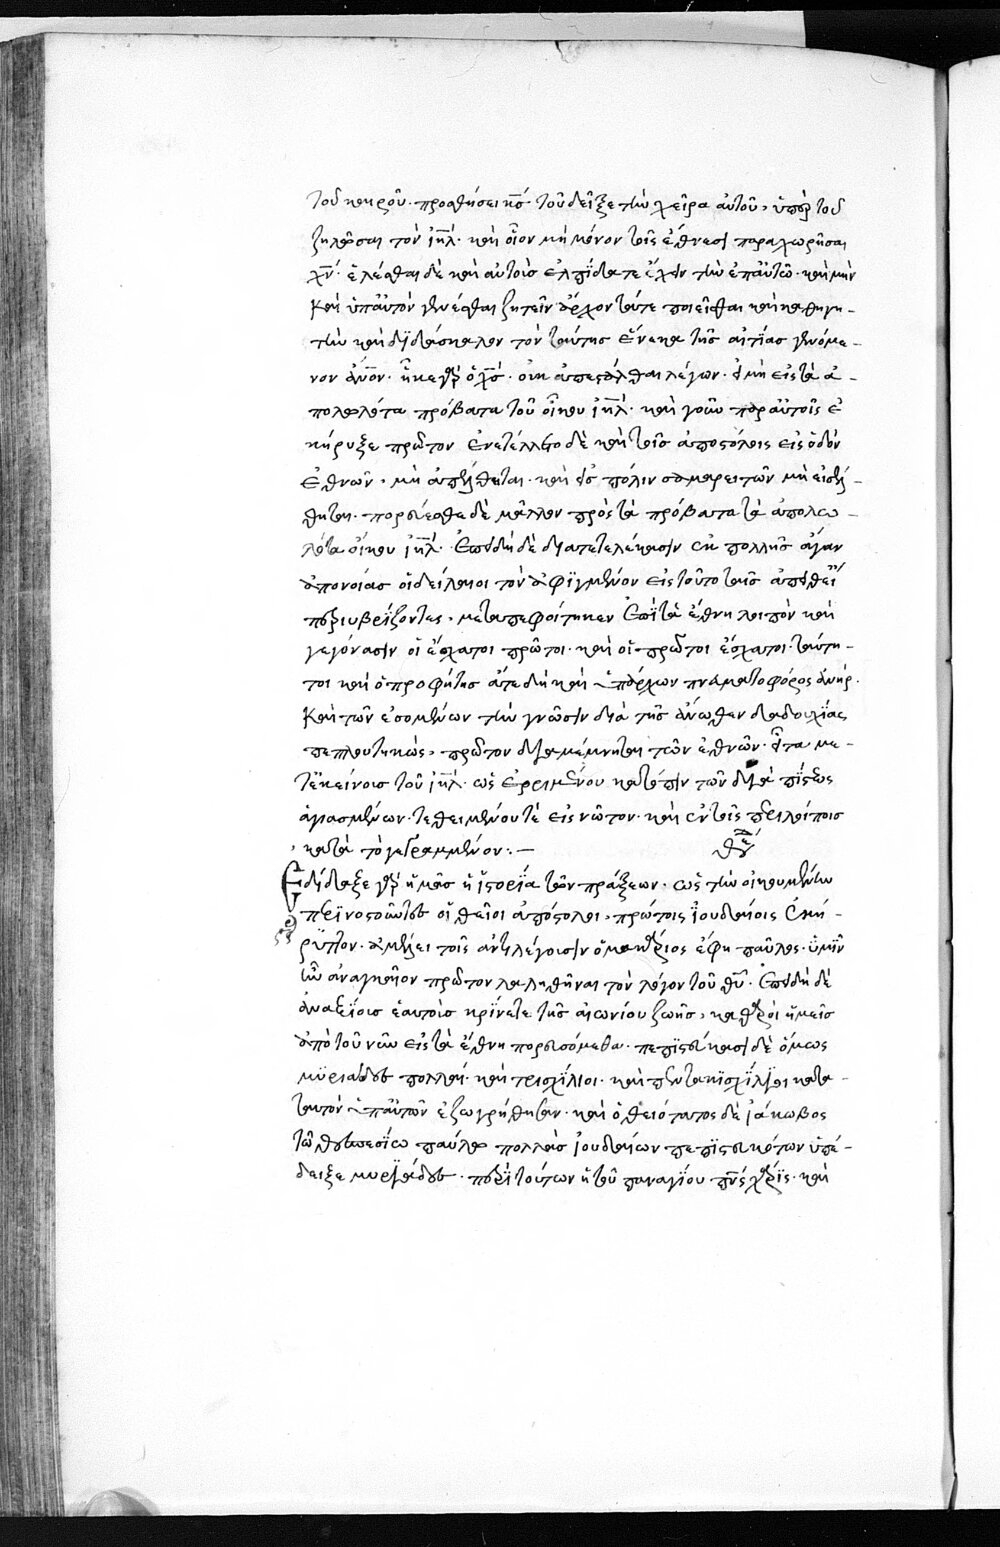 τοῦ καιροῦ· προσθήσει κ̅ς̅ τοῦ δεῖξαι τὴν χεῖρα αὐτοῦ, ὑπὲρ τοῦ
ζηλῶσαι τὸν ἰη̅λ̅· καὶ οἷον μὴ μόνον τοῖς ἔθνεσι παραχωρῆσαι
χ̅ν̅· ἑλέσθαι δὲ καὶ αὐτοὺς ἐλπίδα τε ἔχειν τὴν ἐπ' αὐτῶ· καὶ μὴν
καὶ ὑπ' αὐτὸν γενέσθαι ζητεῖν ἄρχοντά τε ποιεῖσθαι καὶ καθηγη-
τὴν καὶ διδάσκαλον τὸν ταύτης ἕνεκα τῆς αἰτίας γενόμε-
νον ἄν̅ο̅ν· ἧκε γὰρ ὁ χ̅ς̅· οὐκ ἀπεστάλθαι λέγων· εἰ μὴ εἰς τὰ ἀ-
πολωλότα πρόβατα τοῦ οἴκου ἰη̅λ̅· καὶ γοῦν παρ' αὐτοῖς ἐ
κήρυξε πρῶτον ἐνετέλλετο δὲ καὶ τοῖς ἀποστόλοις εἰς ὁδὸν
ἐθνῶν, μὴ ἀπέλθηται· καὶ εἰς πόλιν σαμαρειτῶν μὴ εἰσέλ-
θηται· πορεύεσθε δὲ μᾶλλον πρὸς τὰ πρόβατα τὰ ἀπολω-
λότα οἴκου ἰη̅λ̅· Ἐπειδὴ δὲ διατετελέκασιν ἐκ πολλῆς ἄγαν
ἀπονοίας οἱ δείλαιοι τὸν ἀφιγμένον εἰς τοῦτο ταῖς ἀπειθεί
περιυβρίζοντες, μεταπεφοίτηκεν ἐπὶ τὰ ἔθνη λοιπὸν καὶ
γεγόνασιν οἱ ἔσχατοι πρῶτοι· καὶ οἱ πρῶτοι ἔσχατοι· ταύτη-
τοι καὶ ὁ προφήτης ἅτε δὴ καὶ ὑπάρχων πνευματοφόρος ἀνήρ·
Καὶ τῶν ἐσομένων τὴν γνῶσιν διὰ τῆς ἄνωθεν δαδουχίας
πεπλουτηκὼς, πρῶτον διαμέμνηται τῶν ἐθνῶν· εἶτα με-
τ' ἐκείνοις τοῦ ἰη̅λ̅· ὡς ἐρριμένου κατόπιν τῶν διὰ πίστεως
ἁγιασμένων· τεθειμένου τὲ εἰς νῶτον· καὶ ἐν τοῖς περιλοίποις
κατὰ τὸ γεγραμμένον:—
Ἐδίδαξε γὰρ ἡμᾶς ἡ ἱστορία τῶν πράξεων· ὡς τὴν οἰκουμένην
περινοστοῦντες οἱ θεῖοι ἀπόστολοι, πρώτοις ἰουδαίοις ἐκή-
ρυττον· ἀμέλει τοῖς ἀντιλέγουσιν ὁ μακάριος ἔφη παῦλος· ὑμῖν
ἦν ἀναγκαῖον πρῶτον λαληθῆναι τὸν λόγον τοῦ θ̅υ̅· Ἐπειδὴ δὲ
ἀναξίοις ἑαυτοὺς κρίνετε τῆς αἰωνίου ζωῆς, καθαροὶ ἡμεῖς
ἀπὸ τοῦ νῦν εἰς τὰ ἔθνη πορευσόμεθα· πεπιστεύκασι δὲ ὅμως
μυριάδες πολλαί· καὶ τρισχίλιοι· καὶ πεντακισχίλιοι κατα-
ταυτὸν ὑπ' αὐτῶν ἐζωγρήθησαν· καὶ ὁ θειότατος δὲ ἰάκωβος
τῶ θεσπεσίω παύλω πολλὰς ἰουδαίων πεπιστευκότων ὑπέ-
δειξε μυριάδες· περὶ τούτων ἡ τοῦ παναγίου πν̅ς̅ χάρις· καὶ